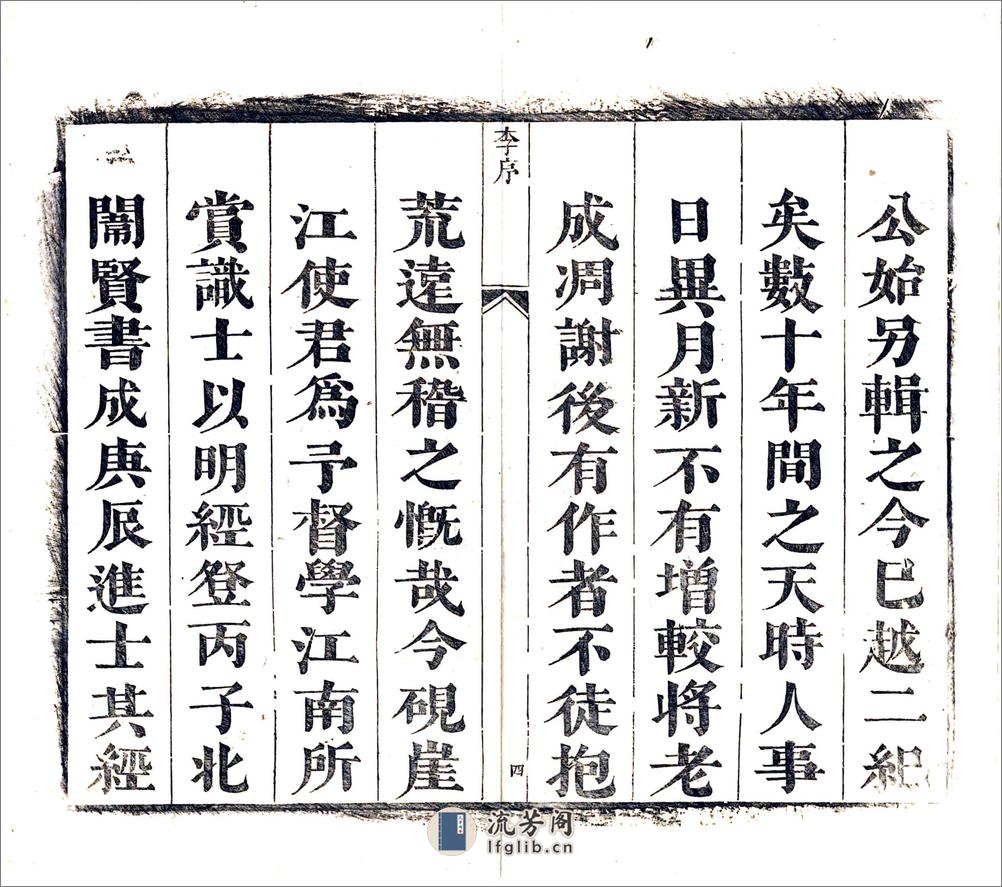 公始另輯之今已越二紀
矣數十年間之天時人事
日異月新不有增較將老
成凋謝後有作者不徒抱
李序
四
荒遠無稽之慨哉今硯崖
江使君爲予督學江南所
賞識士以明經登丙子北
闈賢書成庚辰進士其經
流芳阁
lfglib.cn